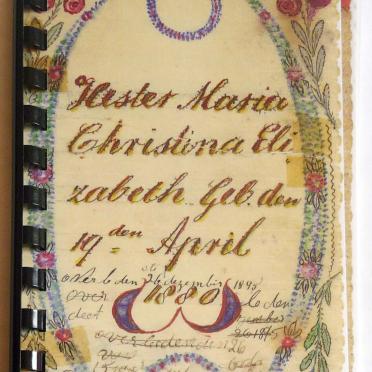 Hester Maria
Christina Eli
zabeth Geb. den
19 den April
over le den 26 desember 1895
1880
over
le den
deet
26 1895
over ledenden 26